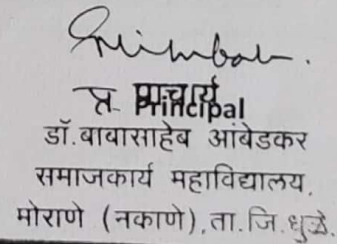 प्र. प्राचार्य
Principal
डॉ.बाबासाहेब आंबेडकर
समाजकार्य महाविद्यालय,
मोराणे (नकाणे),ता.जि.धुळे.